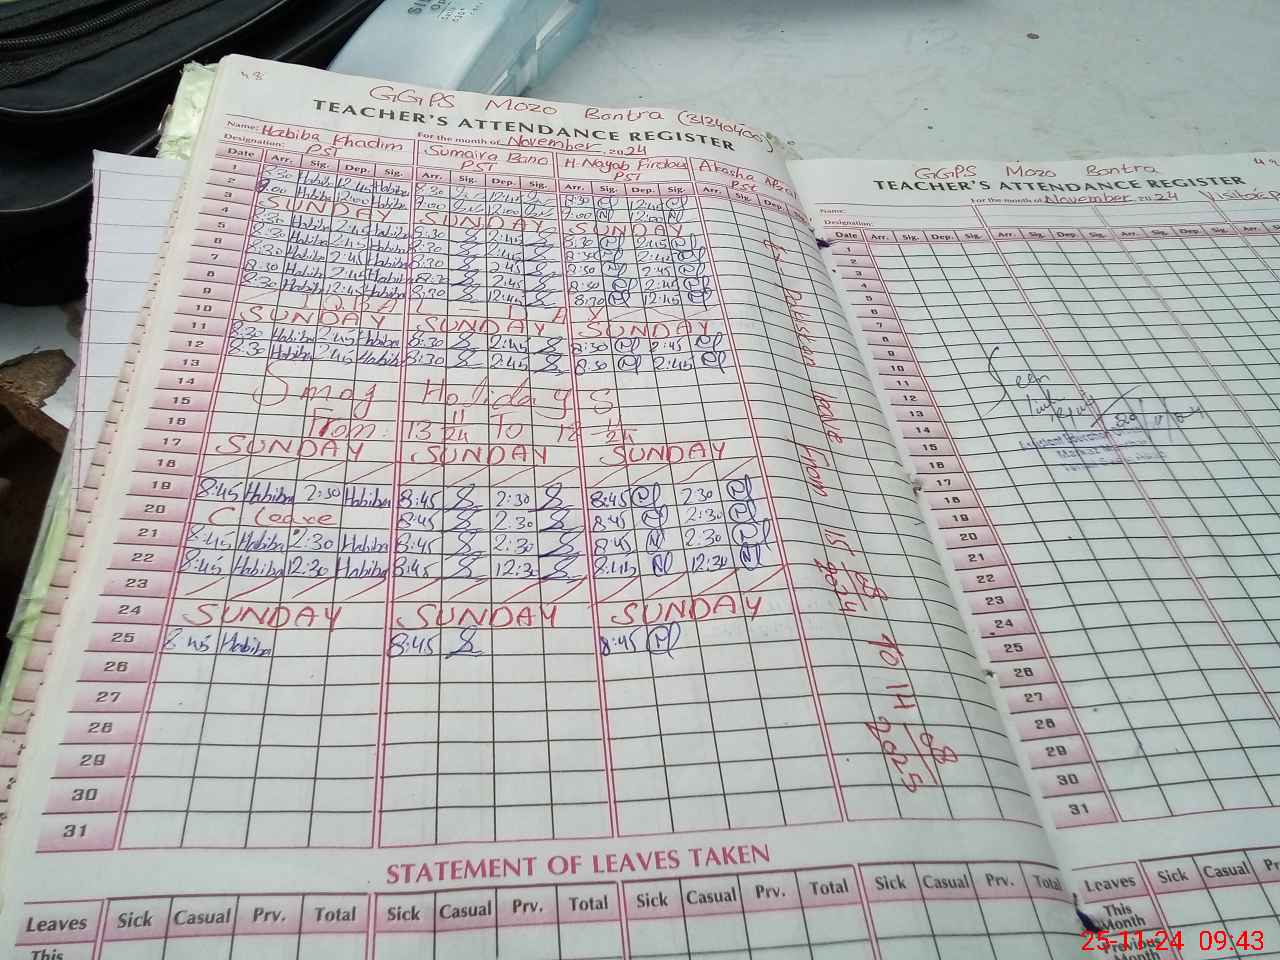 48
GGPS Mozo Bontra (31240400
TEACHER'S ATTENDANCE REGISTER
Name: Habiba Khadim For the month of November 2024
Designation: PST Sumaira Bano PST H. Nayab Firdous PST Akasha PST
Date Arr. Sig. Dep. Sig. Arr. Sig. Dep. Sig. Arr. Sig. Dep. Sig. Arr. Sig. Dep. Sig.
1 8:30 Habiba 12:45 Habiba 8:30 12:45 8:30 12:45
2 9:00 Habiba 12:00 Habiba 9:00 12:00 9:00 12:00
3 SUNDAY SUNDAY SUNDAY
4 8:30 Habiba 2:45 Habiba 8:30 2:45 8:30 2:45
5 8:30 Habiba 2:45 Habiba 8:30 2:45 8:30 2:45
6 8:30 Habiba 2:45 Habiba 8:30 2:45 8:30 2:45
7 8:30 Habiba 2:45 Habiba 8:30 2:45 8:30 2:45
8 8:30 Habiba 12:45 Habiba 8:30 12:45 8:30 12:45
9
10 SUNDAY SUNDAY SUNDAY
11 8:30 Habiba 2:45 Habiba 8:30 2:45 8:30 2:45
12 8:30 Habiba 2:45 Habiba 8:30 2:45 8:30 2:45
13
14 Smog Holidays
15
16 From: 13 11/24 To 11/24
17 SUNDAY SUNDAY SUNDAY
18
19 8:45 Habiba 2:30 Habiba 8:45 2:30 8:45 2:30
20 C leave 8:45 2:30 8:45 2:30
21 8:45 Habiba 2:30 Habiba 8:45 2:30 8:45 2:30
22 8:45 Habiba 12:30 Habiba 8:45 12:30 8:45 12:30
23
24 SUNDAY SUNDAY SUNDAY
25 8:45 Habiba 8:45 8:45
26
27
28
29
30
31
leave from 15 08 2024 To 14 08 2025
STATEMENT OF LEAVES TAKEN
Leaves Sick Casual Prv. Total Sick Casual Prv. Total Sick Casual Prv. Total Sick Casual Prv. Total
This
GGPS Mozo Bontra
TEACHER'S ATTENDANCE REGISTER
Name: For the month of November 2024
Designation:
Date Arr. Sig. Dep. Sig. Arr. Sig. Dep. Sig. Arr. Sig.
1
2
3
4
5
6
7
8
9
10
11
12
13
14
15
16
17
18
19
20
21
22
23
24
25
26
27
28
29
30
31
Seen
Leaves Sick Casual
This Month
Previous Month
25-11-24 09:43